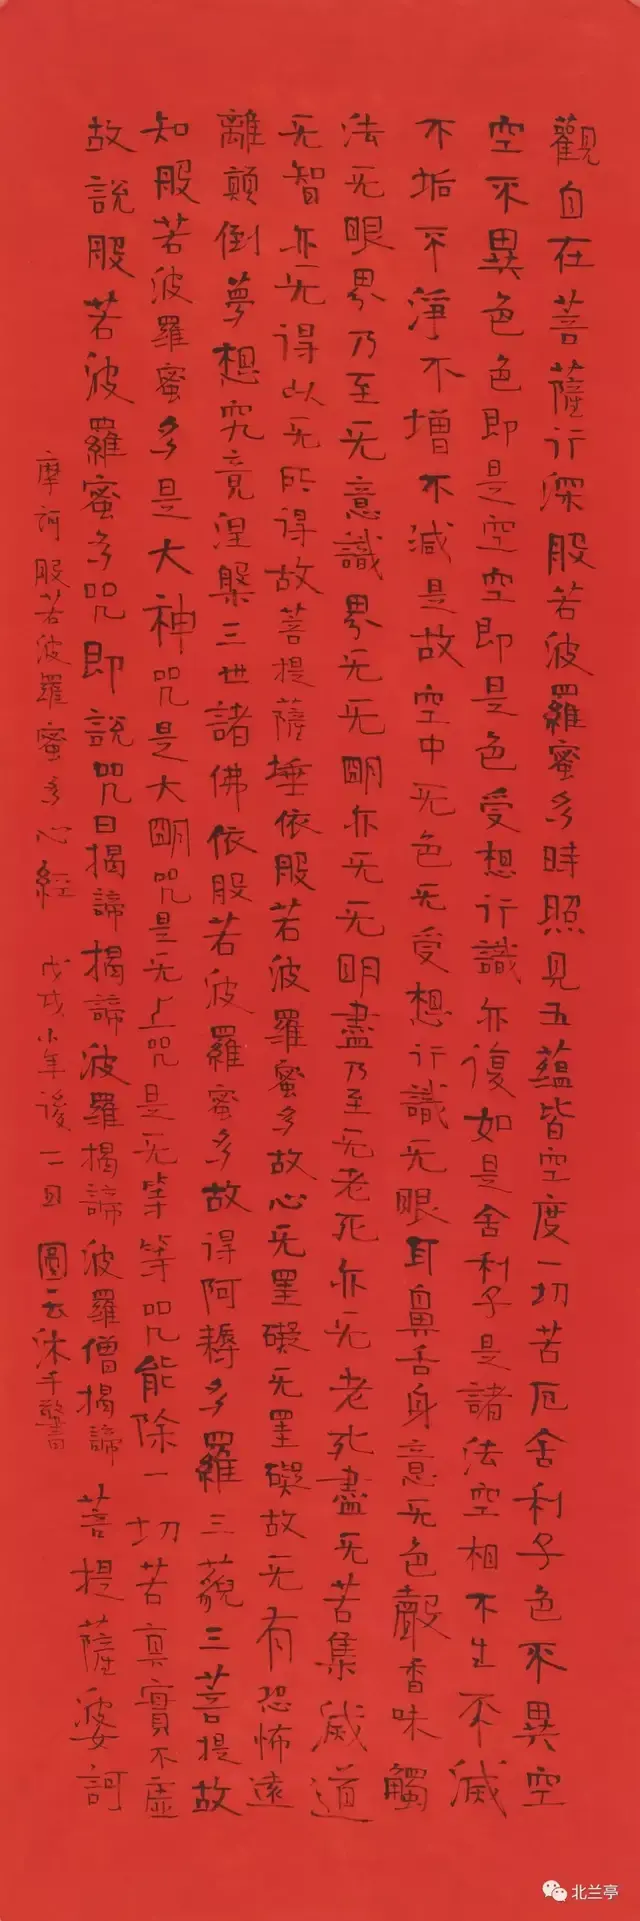 觀自在菩薩行深般若波羅蜜多時照見五蘊皆空度一切苦厄舍利子色不異空
空不異色色即是空空即是色受想行識亦復如是舍利子是諸法空相不生不滅
不垢不淨不增不減是故空中无色无受想行識无眼耳鼻舌身意无色聲香味觸
法无眼界乃至无意識界无无明亦无无明盡乃至无老死亦无老死盡无苦集滅道
无智亦无得以无所得故菩提薩埵依般若波羅蜜多故心无罣礙无罣礙故无有恐怖遠
離顛倒夢想究竟涅槃三世諸佛依般若波羅蜜多故得阿耨多羅三藐三菩提故
知般若波羅蜜多是大神咒是大明咒是无上咒是无等等咒能除一切苦真實不虛
故說般若波羅蜜多咒即說咒曰揭諦揭諦波羅揭諦波羅僧揭諦菩提薩婆訶
摩訶般若波羅蜜多心經 戊戌小年後二日 圖云沐手敬書
北兰亭